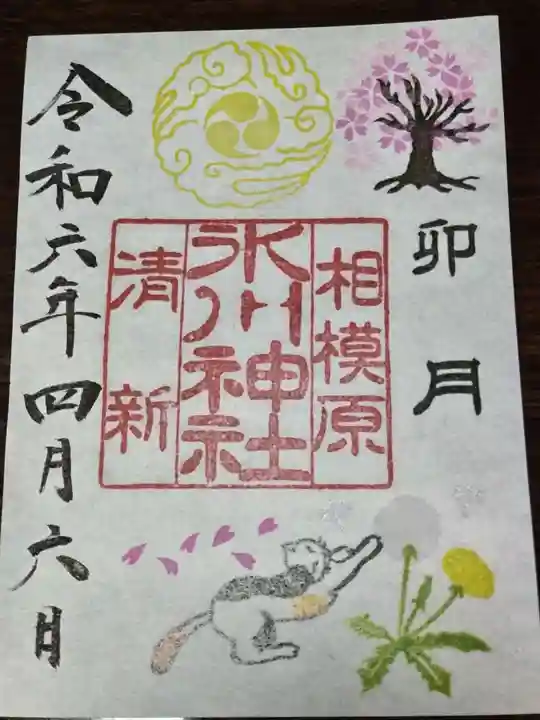 卯月
相模原
氷川神社
清新
令和六年四月六日